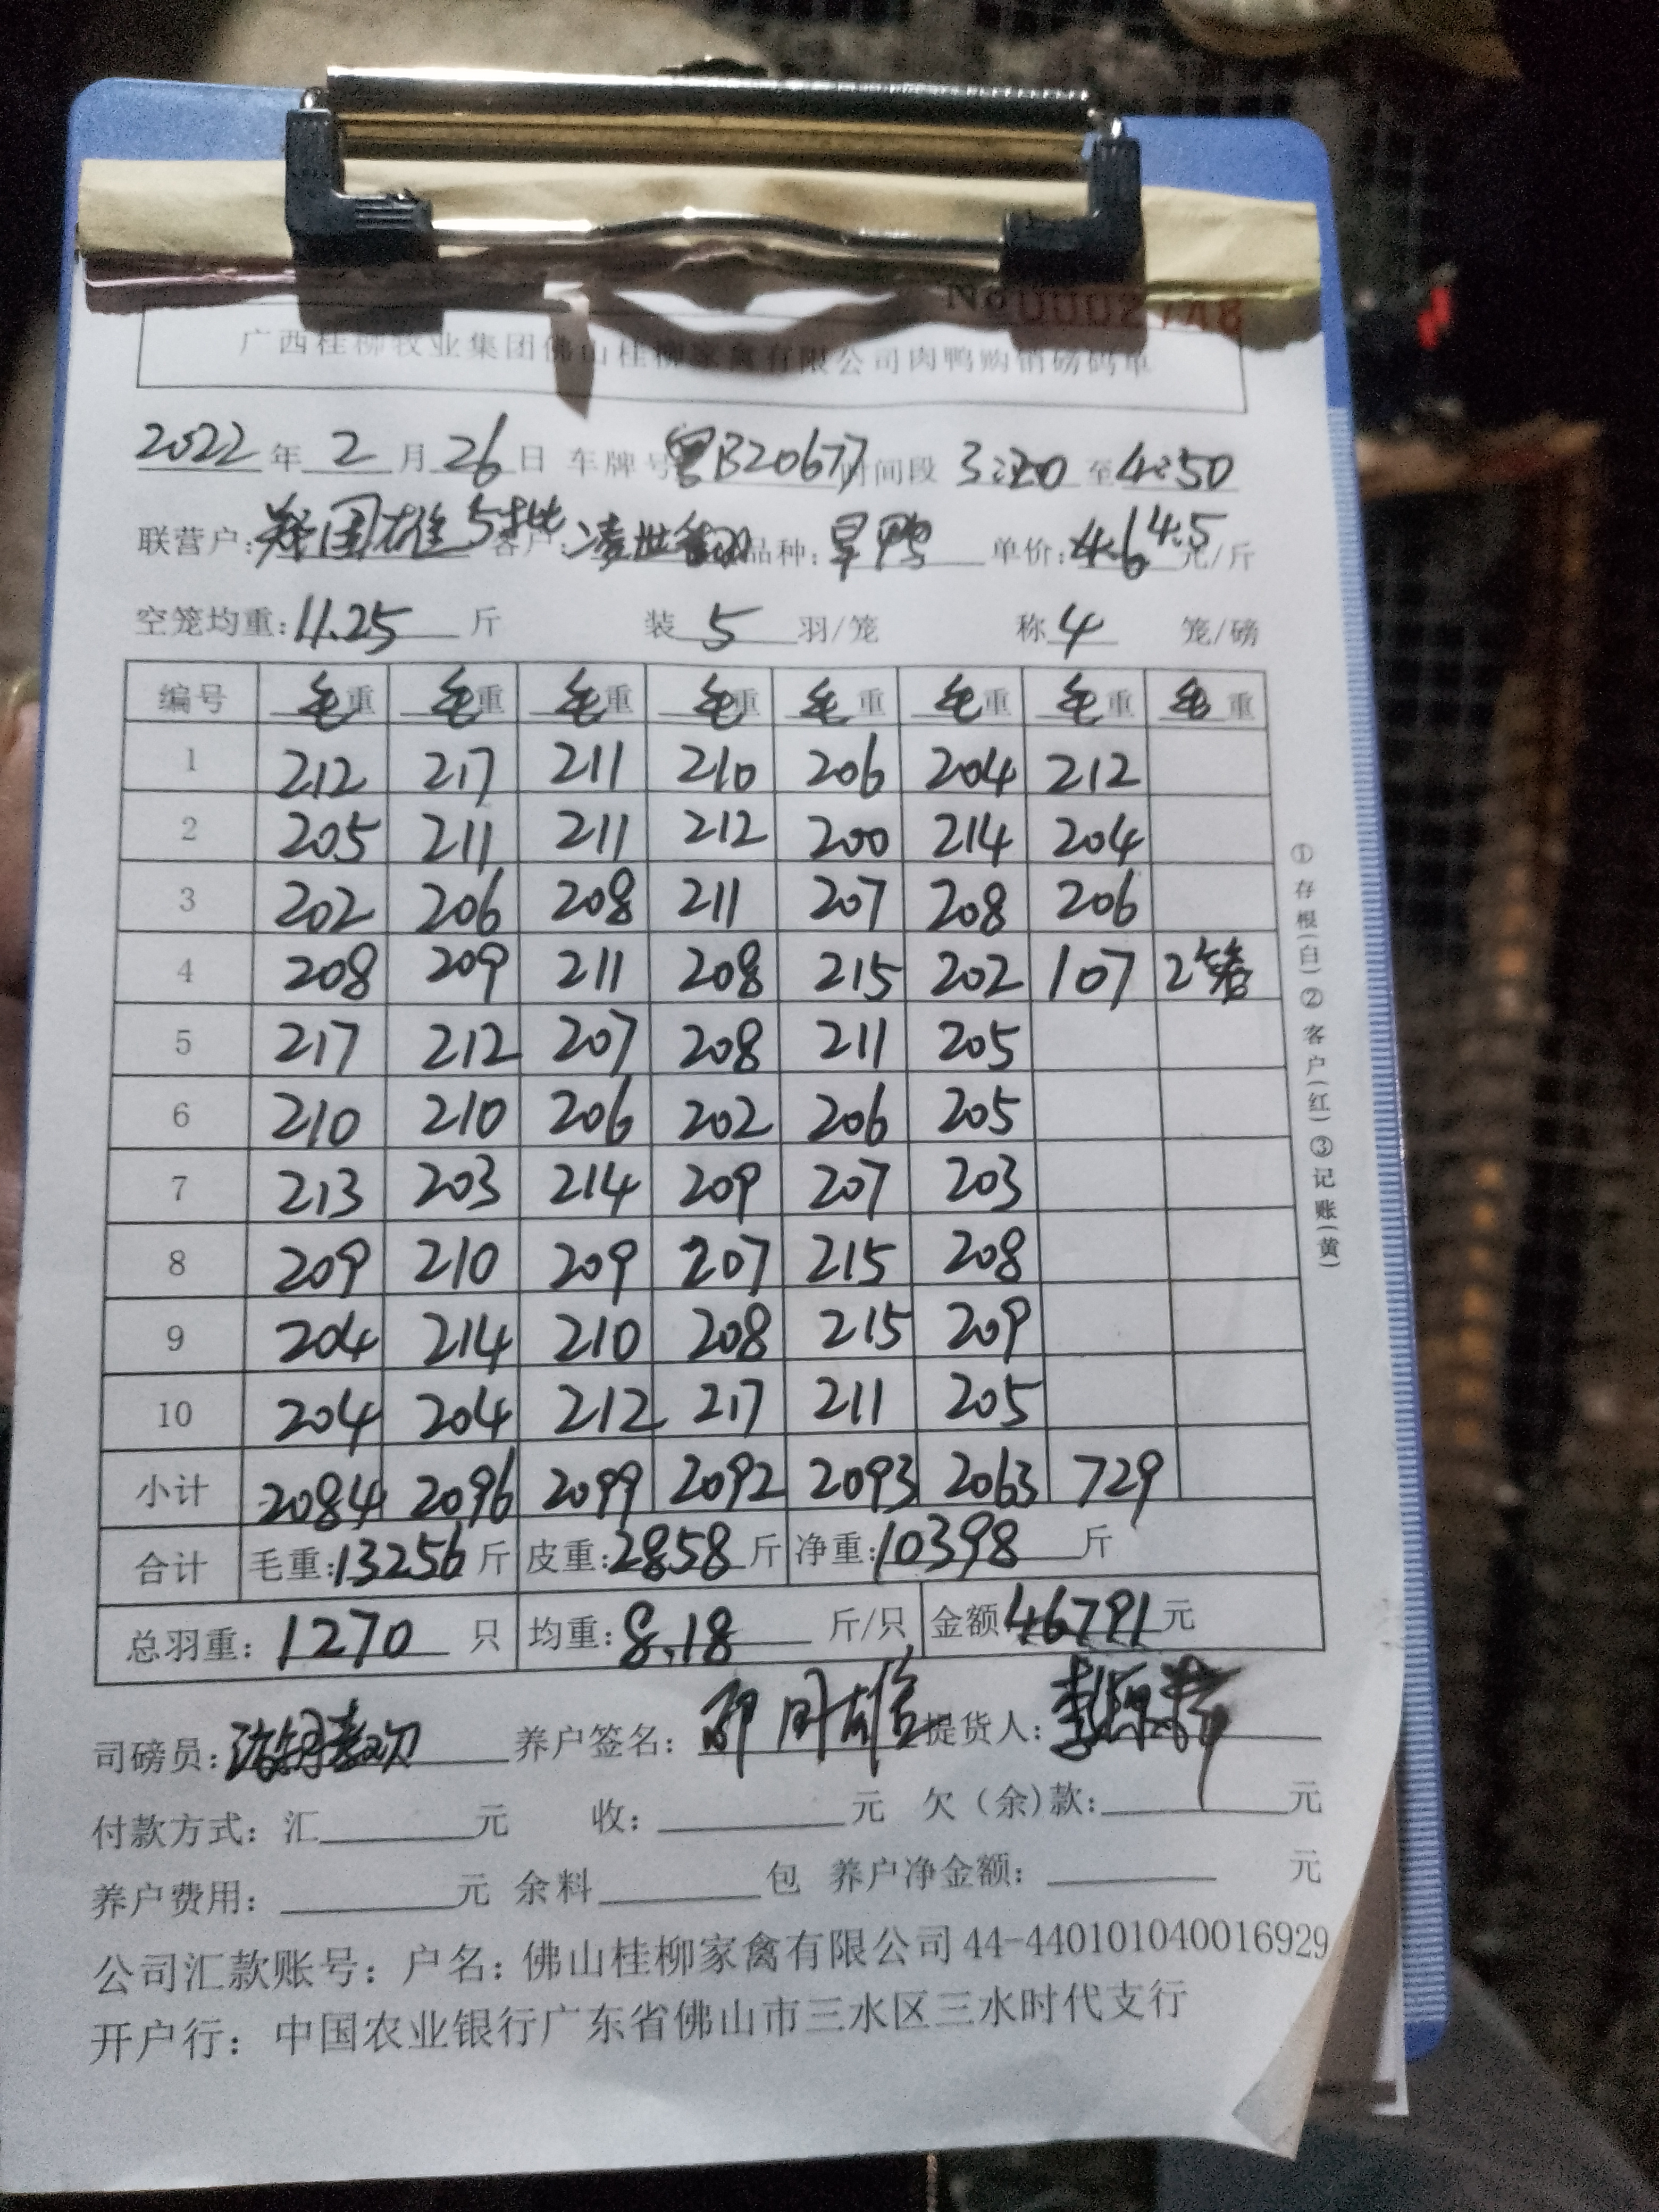 No 0002748
广西桂柳牧业集团佛山桂柳家禽有限公司肉鸭购销磅码单
2022年2月26日 车牌号粤B20677时间段3:20至4:50
联营户:郑国雄5批 客户: 品种:旱鸭 单价:4.6 4.5元/斤
空笼均重:11.25斤 装5羽/笼 称4笼/磅
编号 毛重 毛重 毛重 毛重 毛重 毛重 毛重 毛重
1 212 217 211 210 206 204 212
2 205 211 211 212 200 214 204
3 202 206 208 211 207 208 206
4 208 209 211 208 215 202 107 2笼
5 217 212 207 208 211 205
6 210 210 206 202 206 205
7 213 203 214 209 207 203
8 209 210 209 207 215 208
9 204 214 210 208 215 209
10 204 204 212 217 211 205
小计 2084 2096 2099 2092 2093 2063 729
合计 毛重:13256斤 皮重:2858斤 净重:10398斤
总羽重:1270只 均重:8.18斤/只 金额46791元
司磅员: 养户签名: 提货人:
付款方式:汇 元 收: 元 欠(余)款: 元
养户费用: 元 余料 包 养户净金额: 元
公司汇款账号:户名:佛山桂柳家禽有限公司44-440101040016929
开户行:中国农业银行广东省佛山市三水区三水时代支行
①存根(白)②客户(红)③记账(黄)